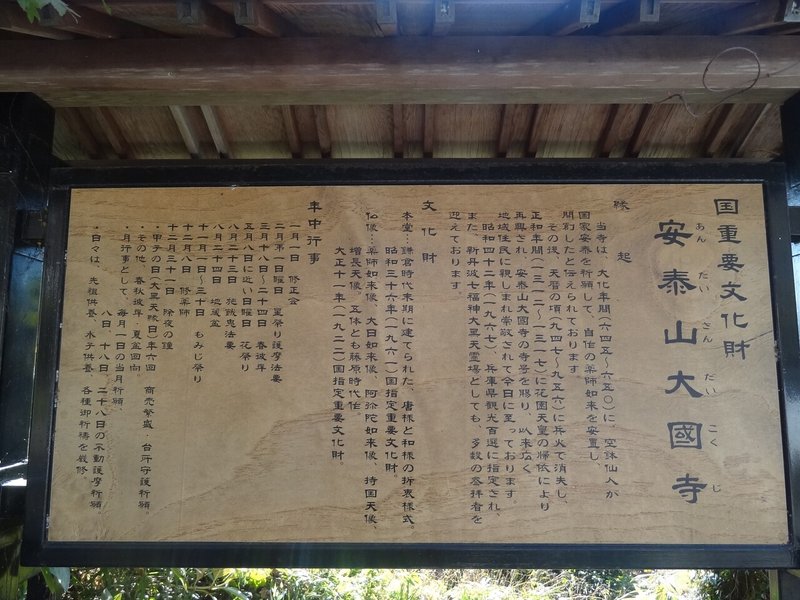 国重要文化財
安泰山大國寺
あん たい さん だい こく じ
縁起
当寺は、大化年間(六四五～六五〇)に、空鉢仙人が
国家安泰を祈願して、自作の薬師如来を安置し、
開創したと伝えられております。
その後、天暦の頃(九四七～九五六)に兵火で消失し、
正和年間(一三一二～一三一七)に花園天皇の帰依により
再興され、安泰山大國寺の寺号を賜り、以来広く
地域住民に親しまれ崇敬されて今日に至っております。
昭和四十二年(一九六七)、兵庫県観光百選に指定され、
また、新丹波七福神大黒天霊場としても、多数の参拝者を
迎えております。
文化財
本堂‥鎌倉時代末期に建てられた、唐様と和様の折衷様式。
昭和三十六年(一九六一)国指定重要文化財。
仏像‥薬師如来像、大日如来像、阿弥陀如来像、持国天像、
増長天像、五体とも藤原時代作。
大正十一年(一九二二)国指定重要文化財。
年中行事
一月一日 修正会
二月第一日曜日 星祭り護摩法要
三月十八日～二十四日 春彼岸
五月八日に近い日曜日 花祭り
八月二十三日 施餓鬼法要
八月二十四日 地蔵盆
十一月一日～三十日 もみじ祭り
十二月八日 終薬師
十二月三十一日 除夜の鐘
・甲子の日(大黒天縁日)年六回 商売繁盛・台所守護祈願。
・その他、春秋彼岸・夏盆回向。
・月行事として、毎月一日の当月祈願、
八日、十八日、二十八日の不動護摩祈願。
・日々は、先祖供養、水子供養、各種御祈祷を厳修。